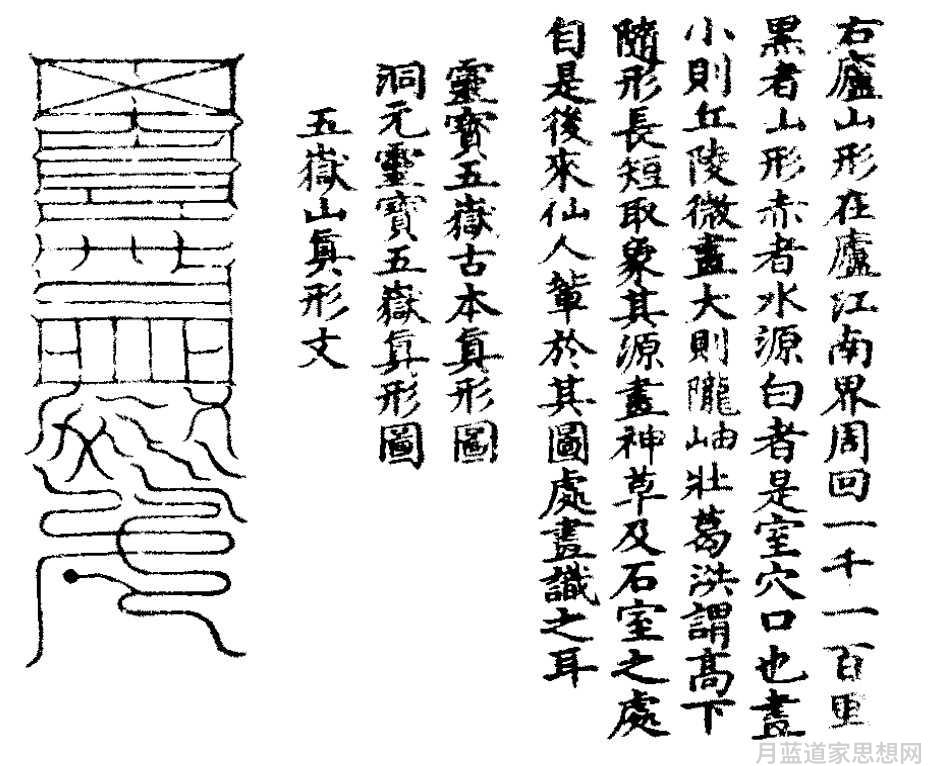 右廬山形在廬江南界周回一千一百里
黒者山形赤者水源白者是室穴口也畫
小則丘陵微畫大則隴岫壯葛洪謂高下
隨形長短取象其源畫神草及石室之處
自是後來仙人輩於其圖處畫識之耳
靈寶五嶽古本眞形圖
洞元靈寶五嶽眞形圖
五嶽山眞形文
月蓝道家思想网